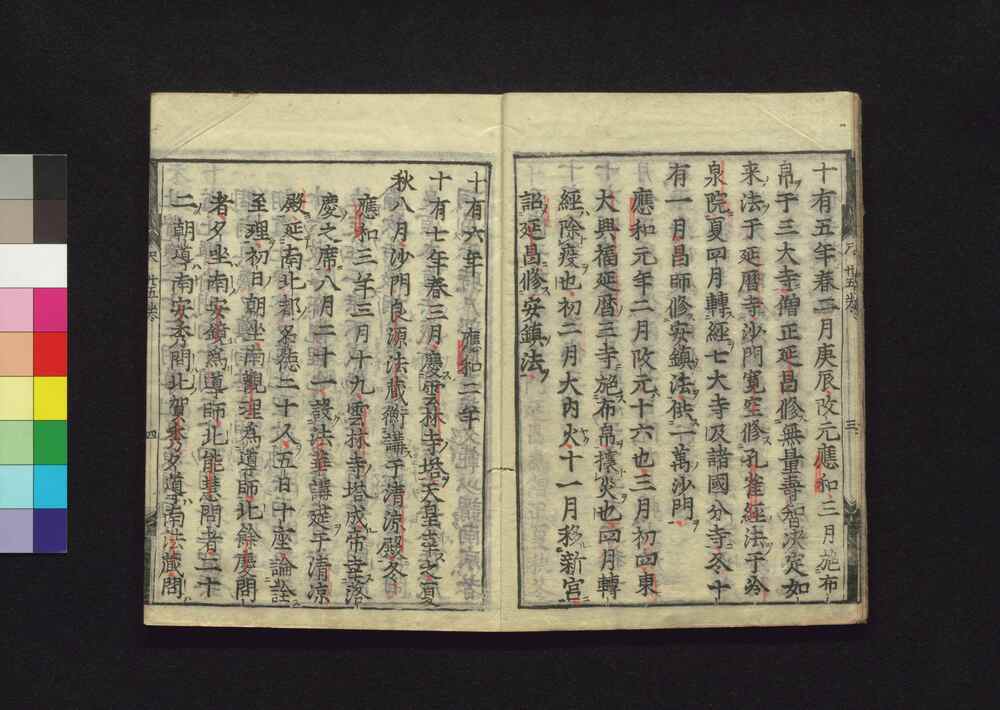 十有五年春二月庚辰改元應和三月施布
帛于三大寺僧正延昌修無量壽智決定如
来法于延暦寺沙門寛空修孔雀經法于冷
泉院夏四月轉經七大寺及諸國分寺冬十
有一月昌師修安鎮法供一萬沙門
應和元年二月改元十六也三月初四東
大興福延暦三寺施布帛攘災也四月轉
經除疫也初二月大内火十一月移新宮
詔延昌修安鎮法
十有六年 應和二年
十有七年春三月慶雲林寺塔天皇幸之夏
秋八月沙門良源法蔵衡講于清涼殿冬
應和三年三月十九雲林寺塔成帝幸落
慶之席八月二十一設法華講筵于清凉
殿延南北都名徳二十人五日十座論詮
至理初日朝坐南觀理為導師北餘慶問
者夕坐南安鏡為導師北能慧問者二十
二朝導南安秀問北賀秀夕導南法蔵問
尺 廿五卷
三
四